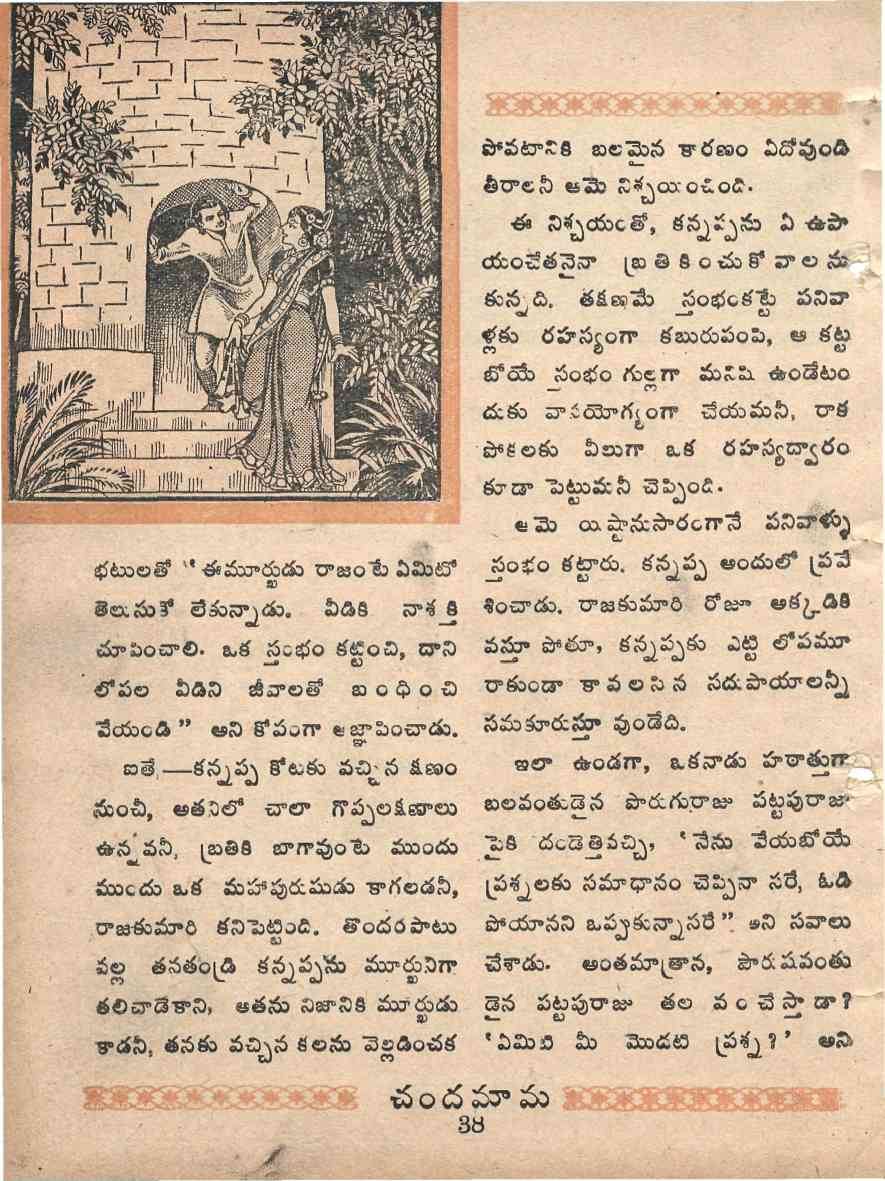 భటులతో “ఈమూర్ఖుడు రాజంటే ఏమిటో
తెలుసుకో లేకున్నాడు. వీడికి నాశక్తి
చూపించాలి. ఒక స్తంభం కట్టించి, దాని
లోపల వీడిని జీవాలతో బంధించి
వేయండి” అని కోపంగా ఆజ్ఞాపించాడు.
ఐతే,—కన్నప్ప కోటకు వచ్చిన క్షణం
నుంచీ, అతనిలో చాలా గొప్పలక్షణాలు
ఉన్నవనీ, బ్రతికి బాగావుంటె ముందు
ముందు ఒక మహాపురుషుడు కాగలడనీ,
రాజకుమారి కనిపెట్టింది. తొందరపాటు
వల్ల తనతండ్రి కన్నప్పను మూర్ఖునిగా
తలిచాడెకాని, అతను నిజానికి మూర్ఖుడు
కాడనీ, తనకు వచ్చిన కలను వెల్లడించక
పోవటానికి బలమైన కారణం ఏదోవుండి
తీరాలనీ ఆమె నిశ్చయించింది.
ఈ నిశ్చయంతో, కన్నప్పను ఏ ఉపా
యంచేతనైనా బ్రతికించుకోవాలను
కున్నది. తక్షణమే స్తంభంకట్టే పనివా
ళ్లకు రహస్యంగా కబురుపంపి, ఆ కట్ట
బోయే స్తంభం గుల్లగా మనిషి ఉండేటం
దుకు వాసయోగ్యంగా చేయమనీ, రాక
పోకలకు వీలుగా ఒక రహస్యద్వారం
కూడా పెట్టుమనీ చెప్పింది.
ఆమె యిష్టానుసారంగానే పనివాళ్ళు
స్తంభం కట్టారు. కన్నప్ప అందులో ప్రవే
శించాడు. రాజకుమారి రోజూ అక్కడికి
వస్తూ పోతూ, కన్నప్పకు ఎట్టి లోపమూ
రాకుండా కావలసిన సదుపాయాలన్నీ
సమకూరుస్తూ వుండేది.
ఇలా ఉండగా, ఒకనాడు హఠాత్తుగా
బలవంతుడైన పొరుగురాజు పట్టపురాజు
పైకి దండెత్తివచ్చి, ‘నేను వేయబోయే
ప్రశ్నలకు సమాధానం చెప్పినా సరే, ఓడి
పోయానని ఒప్పుకున్నాసరే” అని సవాలు
చేశాడు. అంతమాత్రాన, పౌరుషవంతు
డైన పట్టపురాజు తల వంచేస్తాడా?
‘ఏమిటి మీ మొదటి ప్రశ్న?’ అని
చందమామ
38